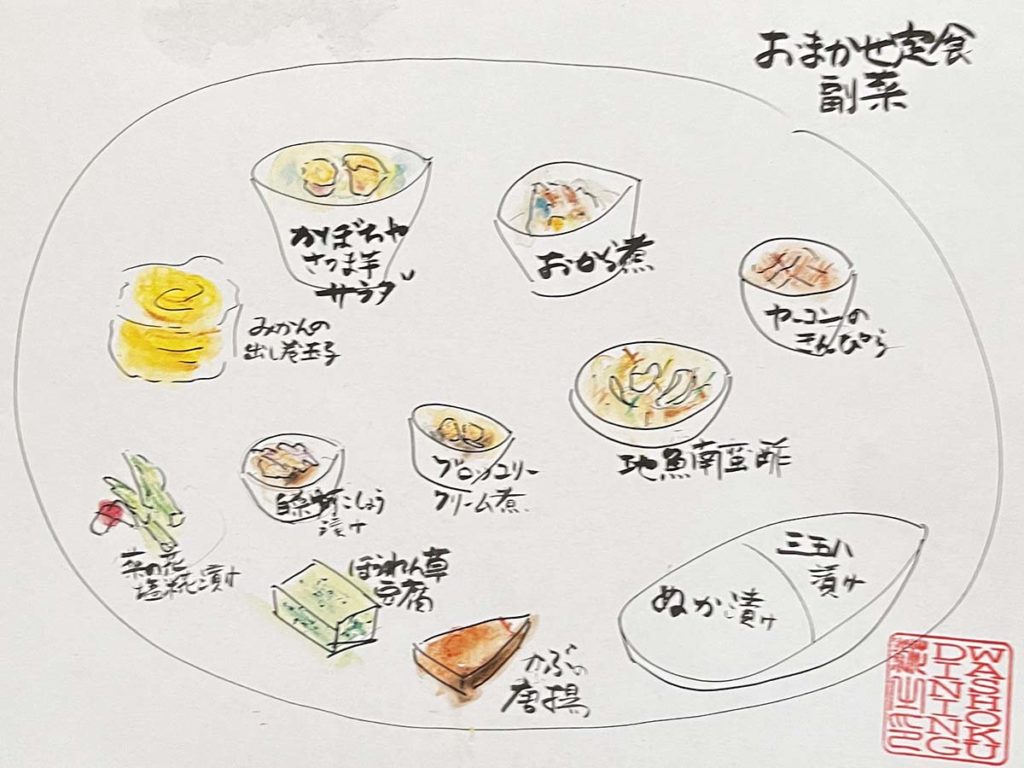 おまかせ定食
副菜
かぼちゃ
さつま芋
サラダ
おから煮
ヤーコンの
きんぴら
みかんの
出し巻玉子
地魚南蛮酢
ブロッコリー
クリーム煮
白菜柚こしょう
漬け
菜の花
塩糀漬け
ほうれん草
豆腐
かぶの
唐揚
ぬか漬け
三五八
漬け
WASHOKU
DINING